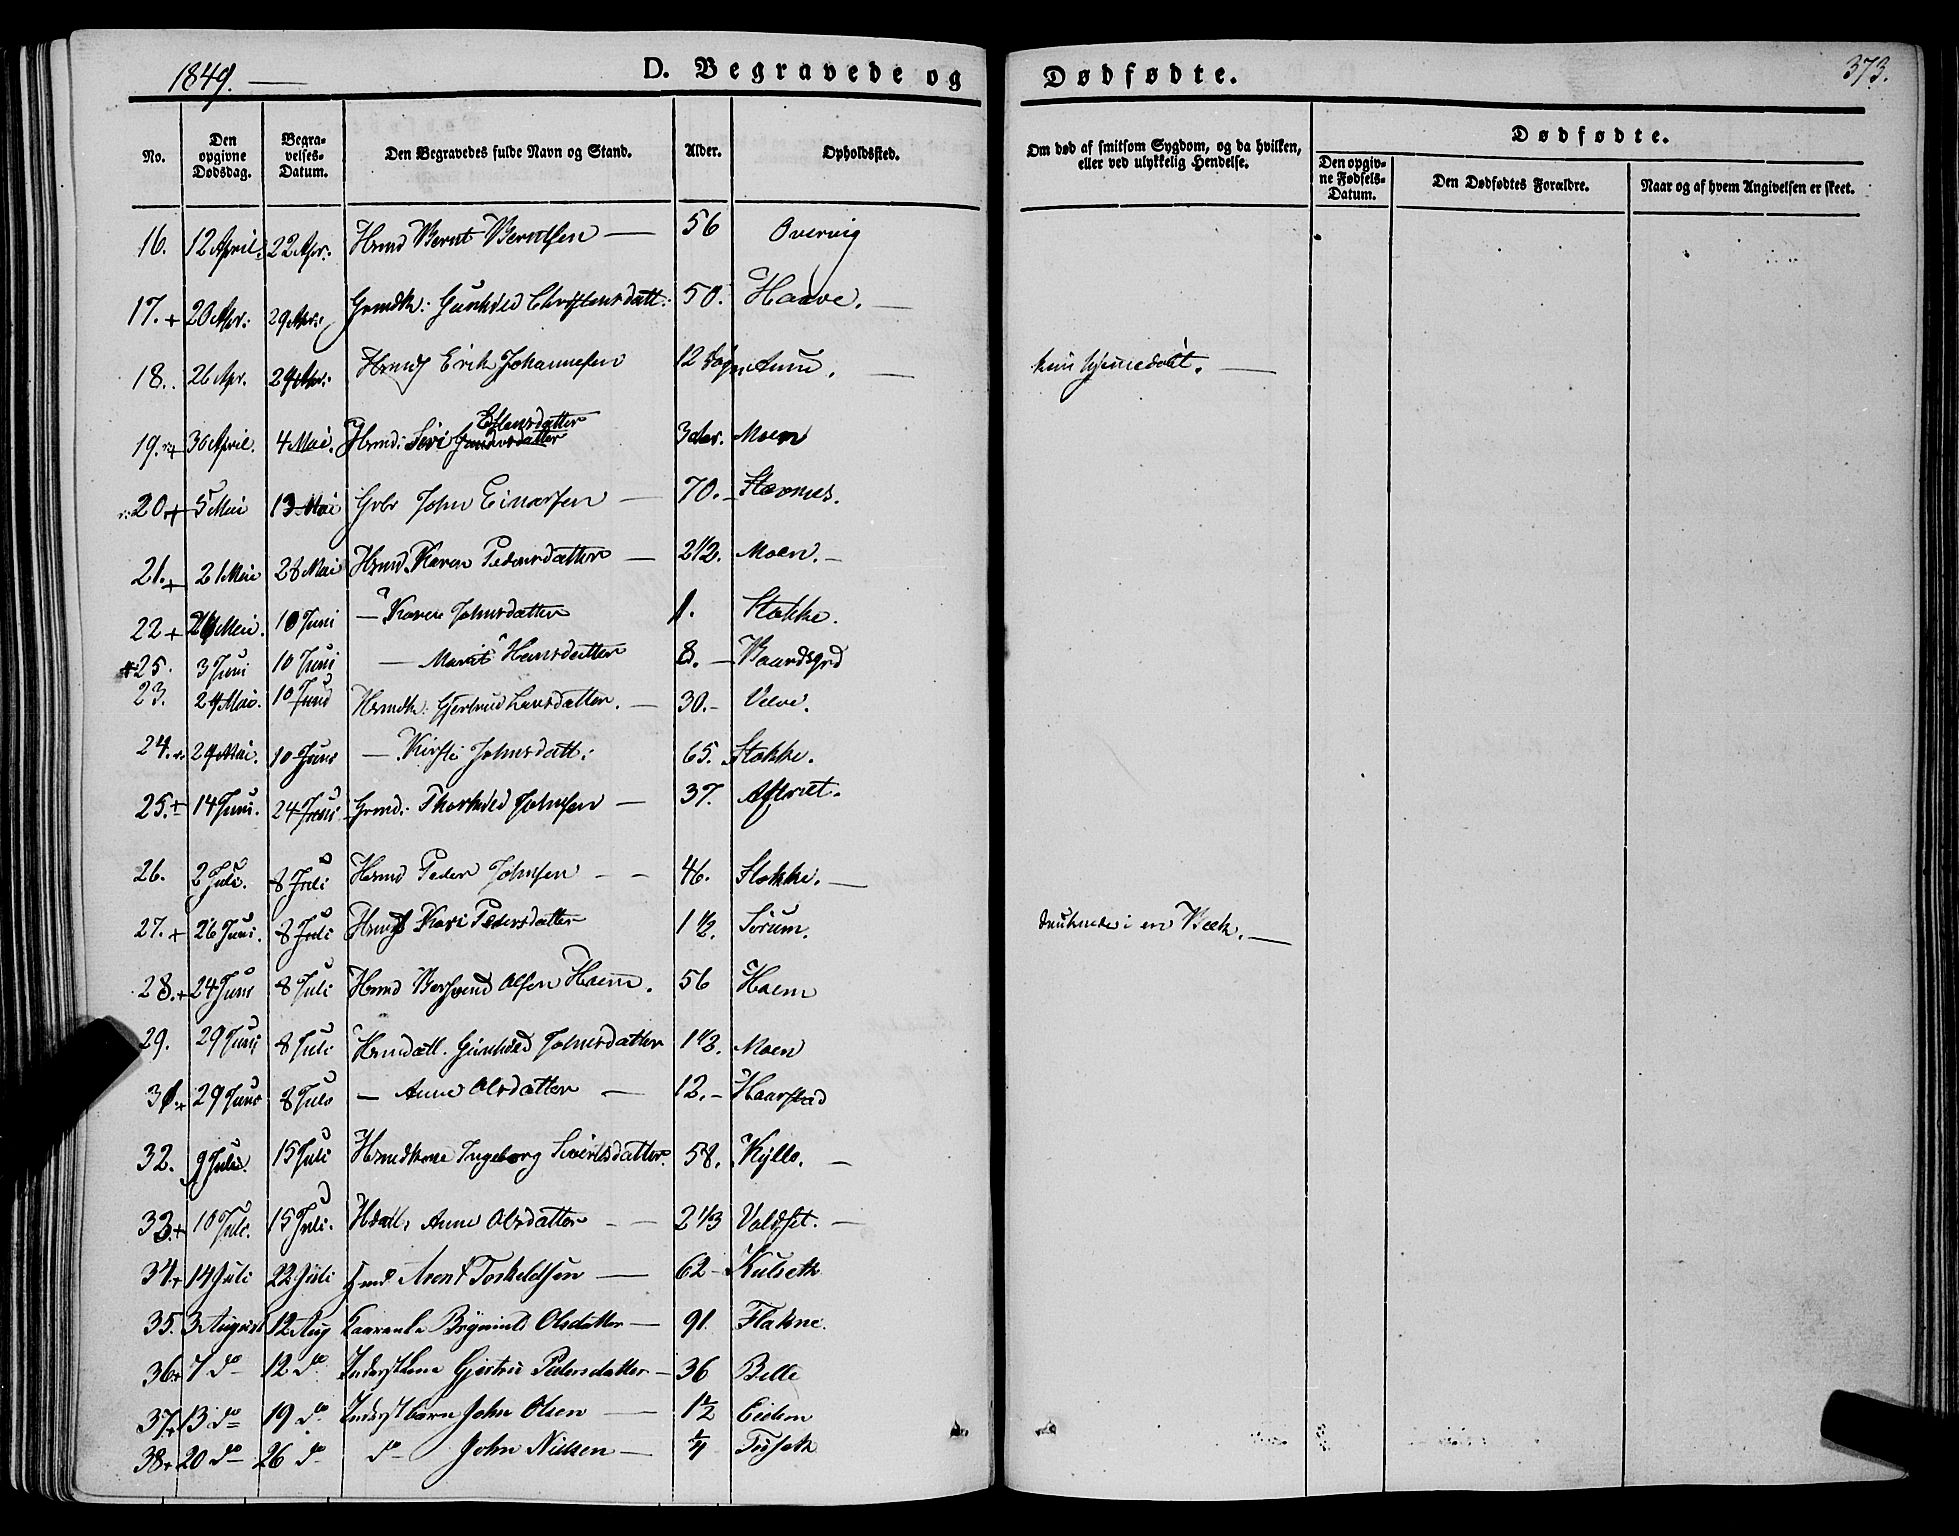 1849. D. Begravede og Dødfødte. 373.
No. Den opgivne Dødsdag. Begravelses-Datum. Den Begravedes fulde Navn og Stand. Alder. Opholdssted. Om død af smitsom Sygdom, og da hvilken, eller ved ulykkelig Hendelse. Dødfødte.
Den opgivne Fødsels-Datum. Den Dødfødtes Forældre. Naar og af hvem Angivelsen er skeet.
16. 12 April 22 Apr: Hsmd Bernt Berntsen 56 Overvig
17. + 20 Apr: 29 Apr: Grmdk: Gunhild Christensdatt: 50. Haave.
18. 26 Apr. 29 Apr: Erik Johannesen 12 Dage Aune. kun hjemmedøbt.
19. + 30 April. 4 Mai. Siri Estensdatter 3 Aar. Moen
20. + 5 Mai 13 Mai John Einarsen 70. Stavnes.
21. + 21 Mai 28 Mai Karen Pedersdatter 2 1/2. Moen.
22 + 26 Mai. 10 Juni — Karen Johnsdatter 1. Stokke.
25. 3 Juni 10 Juni — Marit Hansdatter 8. Baardsgrd
23. 24 Mai. 10 Juni Hsmdk: Gjertrud Larsdatter. 30. Velve.
24. 29 Mai. 10 Juni — Kirsti Johnsdatt: 65. Stokke.
25. + 14 Juni. 24 Juni Grmd: Thorkild Johnsen 37. Aftret.
26. 2 Juli. 8 Juli Hsmd Peder Johnsen 46. Stokke.
27. + 26 Juni. 8 Juli Kari Pedersdatter 1 1/2. Sørum. druknede i en Bæk.
28. + 24 Juni 8 Juli Hsmd Olsen Haem. 56 Haem
29. 29 Juni 8 Juli Gunhild Johnsdatter 1 1/2. Moen
31. + 29 Juni 8 Juli — Anne Olsdatter 12. Haarstad
32. 9 Juli. 15 Juli Hsmdkone Ingeborg Sivertsdatter. 58. Kyllo.
33. + 10 Juli. 15 Juli. Anne Olsdatter 2 1/3 Valdset.
34. + 14 Juli 22 Juli Arent Torkeldsen 62 Kulseth
35. 3 August 12 Aug Olsdatter 91. Flakne.
36 + 7 do 12. do Inderstkone Gjertru Pedersdatter 36 Belle
37. + 13 do 19 do Inderstbarn John Olsen 1 1/2 Eidem
38 + 20 do 26 do do John Nielsen 1/4 Tufsek